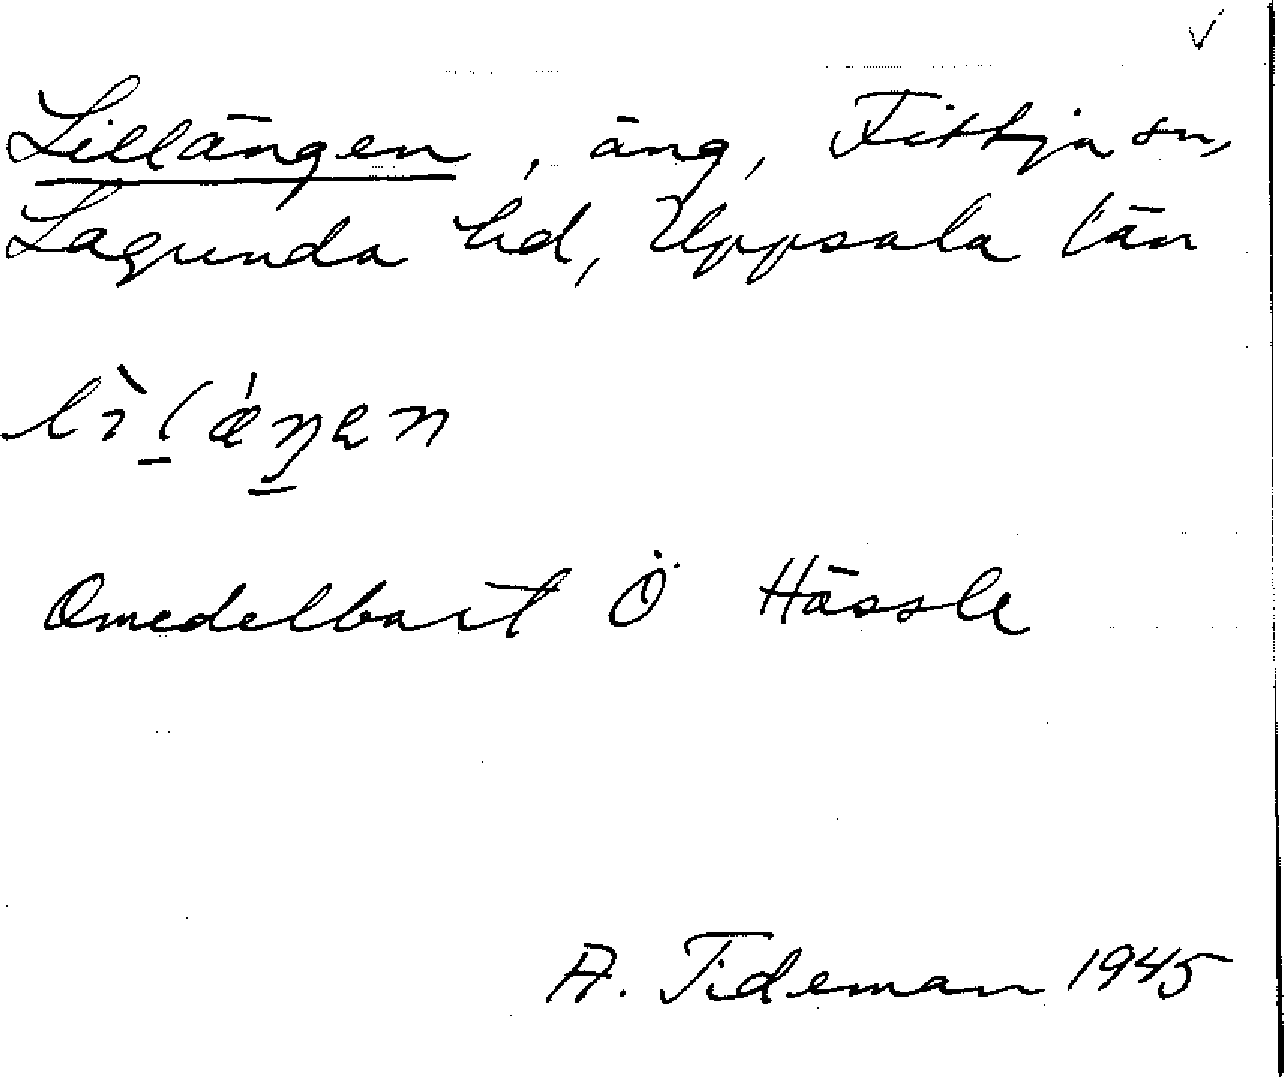 Lillängen, äng, Fittja sn,
Lagunda hd, Uppsala län
lìlǽŋen
Omedelbart Ö Hässle
A. Tideman 1945